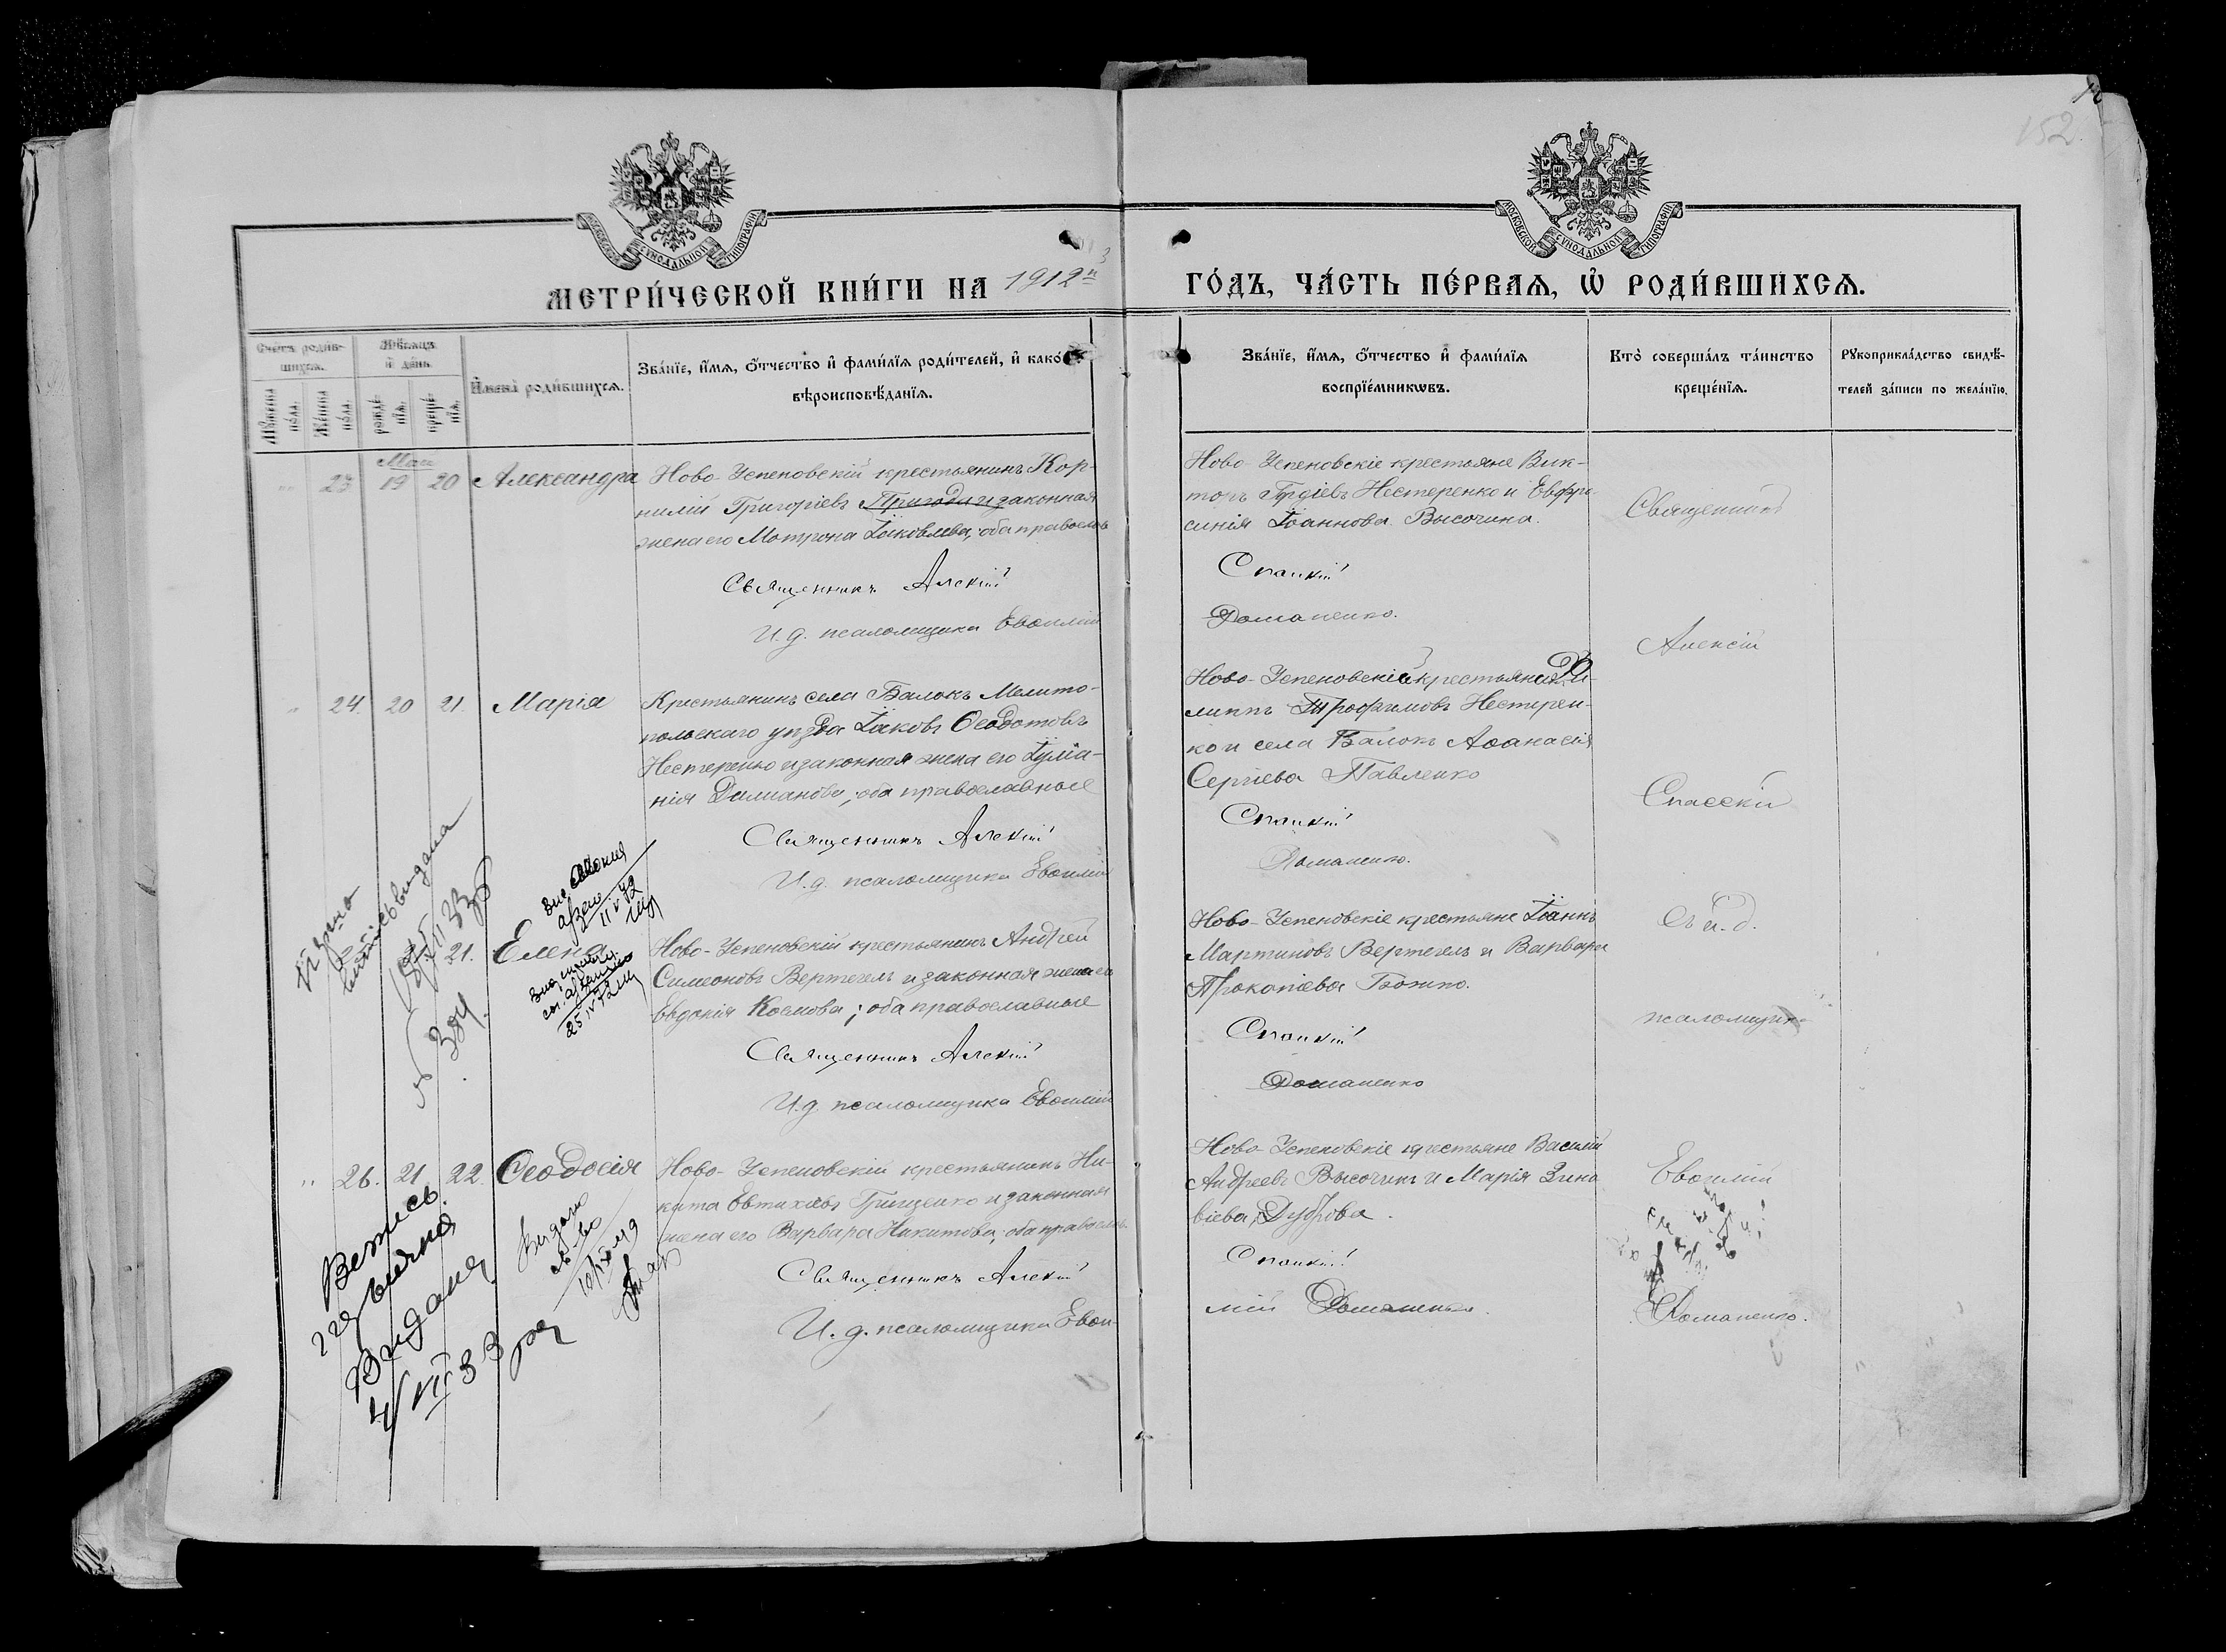 152
МОСКОВСКОЙ СѴНОДАЛЬНОЙ ТИПОГРАФІИ
МОСКОВСКОЙ СѴНОДАЛЬНОЙ ТИПОГРАФІИ
МЕТРИ́ЧЕСКОЙ КНИ́ГИ НА 1912й
ГО́ДЪ, ЧА́СТЬ ПЕ́РВАЯ, Ѡ РОДИ́ВШИХСЯ.
Сче́тъ роди́в-
шихся.
Мѣ́сяцъ
и де́нь.
Му́жеска по́ла.
Же́нска по́ла.
рожде́-нія.
креще́-нія.
Имена̀ роди́вшихся.
Зва́нїе, и́мя, ѻ́тчество и фами́лїя роди́телей, и како́гѡ
вѣроисповѣ́данїя.
Зва́нїе, и́мя, ѻ́тчество и фами́лїя
воспрїе́мникѡвъ.
Кто̀ соверша́лъ та́инство
креще́нїя.
Рꙋкоприкла́дство свидѣ́-
телей за́писи по жела́нїю.
Май
" 23 19 20 Александра
Ново-Успеновскій крестьянинъ Кор-
нилій Григоріевъ Пригода и законная
жена его Матрона Іаковлева; оба правосл
Священникъ Алексій
И. д. псаломщика Евѳимій
Ново-Успеновскіе крестьяне Вик-
торъ Нестеренко и Евфро-
синія Іоаннова Высочина.
Спасскій
Романенко.
" 24. 20 21. Марія
Крестьянинъ села Балокъ Мелито-
польскаго уѣзда Іаковъ Ѳеодотовъ
Нестеренко и законная жена его Іуліа-
нія Даміанова; оба православные
Священникъ Алексій
И. д. псаломщика Евѳимій
Ново-Успеновскій крестьянинъ Фи-
липпъ Трофимовъ Нестерен-
ко и села Балокъ Аѳанасія
Сергіева Павленко
Спасскій
Романенко.
21. Елена
Ново-Успеновскій крестьянинъ Андрей
Симеоновъ Вертегелъ и законная жена его
Евдокія Космова; оба православные
Священникъ Алексій
И. д. псаломщика Евѳимій
Ново-Успеновскіе крестьяне Іоаннъ
Мартиновъ Вертегелъ и Варвара
Прокопіева Божко.
Спасскій
Романенко
" 26. 21 22. Ѳеодосія
Ново-Успеновскій крестьянинъ Ни-
кита Евтихіевъ Грищенко и законная
жена его Варвара Никитова; оба правосл
Священникъ Алексій
И. д. псаломщика Евѳи-
Ново-Успеновскіе крестьяне Василій
Андреевъ Высочинъ и Марія Зино
віева Дуброва.
Спасскій
мій Романенко.
Священникъ
Алексій
Спасскій
съ и. д.
псаломщика
Евѳиміи
Романенко.
видана
33
№ 384.
25 IV 72
Витяг
видана
VII 33
Видано
св-во